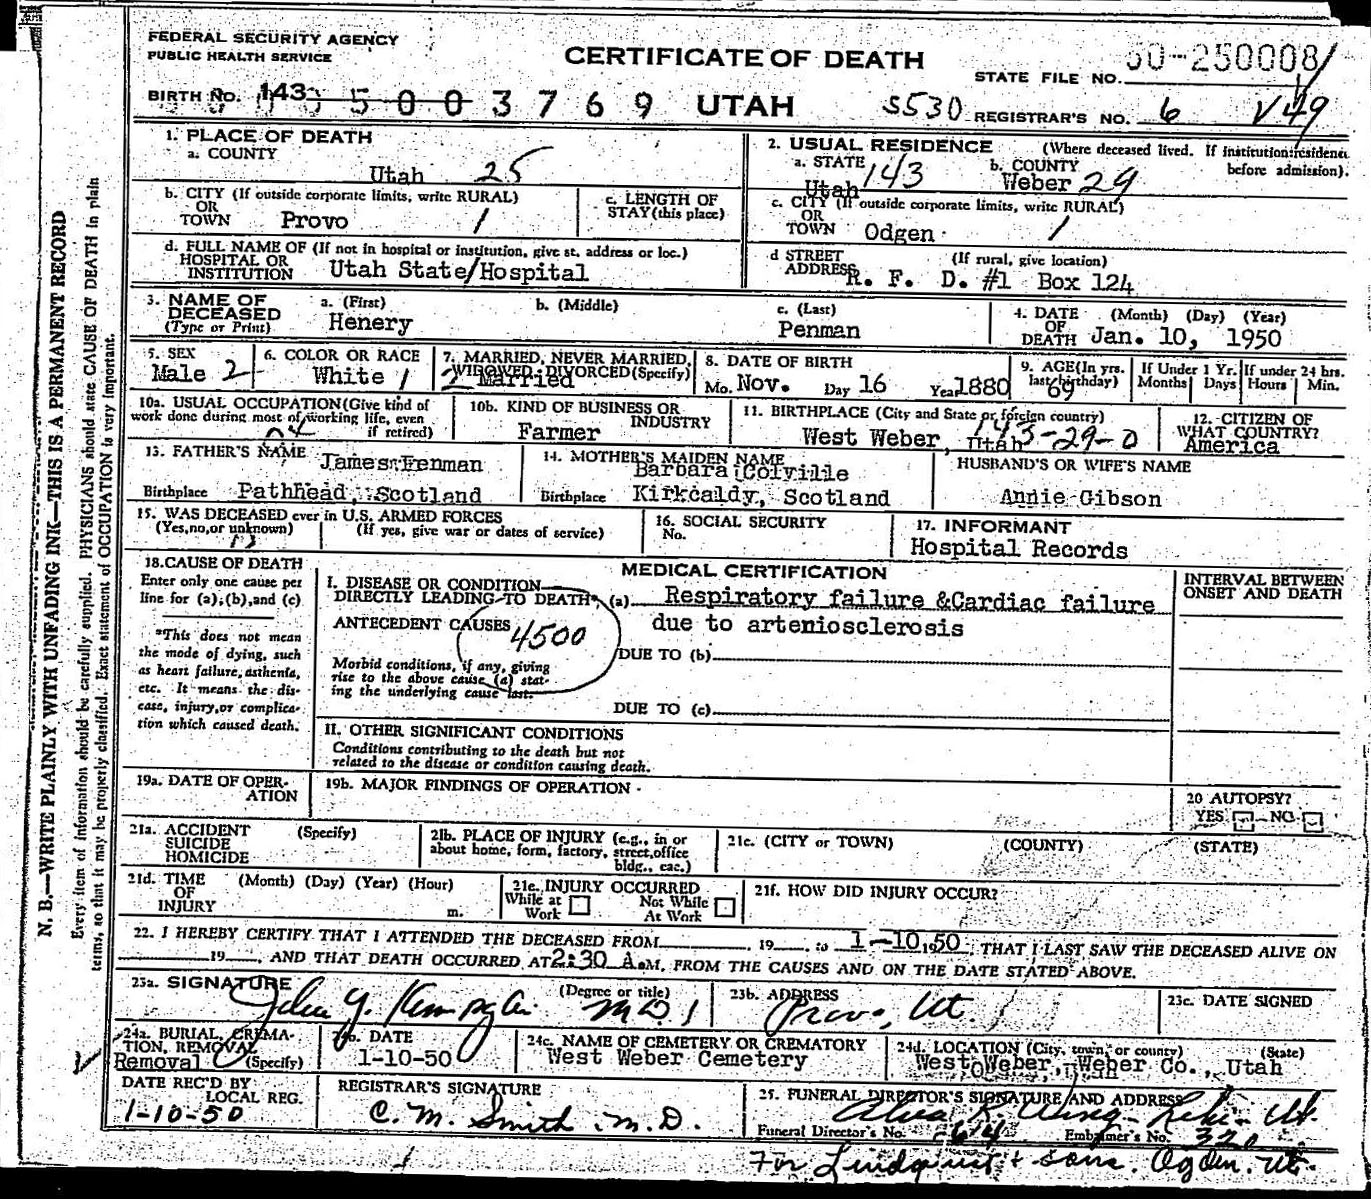 FEDERAL SECURITY AGENCY
PUBLIC HEALTH SERVICE
CERTIFICATE OF DEATH
STATE FILE NO. 50-250008
BIRTH No. 143 5003769 UTAH S530 REGISTRAR'S NO. 6 V49
N. B.—WRITE PLAINLY WITH UNFADING INK—THIS IS A PERMANENT RECORD
Every item of information should be carefully supplied. PHYSICIANS should state CAUSE OF DEATH in plain
terms, so that it may be properly classified. Exact statement of OCCUPATION is very important.
1. PLACE OF DEATH
a. COUNTY
Utah 25
b. CITY (If outside corporate limits, write RURAL)
OR
TOWN Provo 1
c. LENGTH OF
STAY (this place)
d. FULL NAME OF (If not in hospital or institution, give st. address or loc.)
HOSPITAL OR
INSTITUTION Utah State/Hospital
2. USUAL RESIDENCE (Where deceased lived. If institution: residence
before admission).
a. STATE
Utah 143
b. COUNTY
Weber 29
c. CITY (If outside corporate limits, write RURAL)
OR
TOWN Odgen 1
d STREET (If rural, give location)
ADDRESS R. F. D. #1 Box 124
3. NAME OF
DECEASED
(Type or Print)
a. (First)
Henery
b. (Middle)
c. (Last)
Penman
4. DATE (Month) (Day) (Year)
OF
DEATH Jan. 10, 1950
5. SEX
Male 2
6. COLOR OR RACE
White 1
7. MARRIED, NEVER MARRIED,
WIDOWED, DIVORCED (Specify)
2 Married
8. DATE OF BIRTH
Mo. Nov. Day 16 Year 1880
9. AGE (In yrs.
last birthday)
69
If Under 1 Yr.
Months Days
If under 24 hrs.
Hours Min.
10a. USUAL OCCUPATION (Give kind of
work done during most of working life, even
if retired)
10b. KIND OF BUSINESS OR
INDUSTRY
Farmer
11. BIRTHPLACE (City and State or foreign country)
West Weber, Utah 143-29-0
12. CITIZEN OF
WHAT COUNTRY?
America
13. FATHER'S NAME James Penman
Birthplace Pathhead, Scotland
14. MOTHER'S MAIDEN NAME
Barbara Colville
Birthplace Kirkcaldy, Scotland
HUSBAND'S OR WIFE'S NAME
Annie Gibson
15. WAS DECEASED ever in U.S. ARMED FORCES
(Yes, no, or unknown) (If yes, give war or dates of service)
16. SOCIAL SECURITY
No.
17. INFORMANT
Hospital Records
18. CAUSE OF DEATH
Enter only one cause per
line for (a), (b), and (c)
*This does not mean
the mode of dying, such
as heart failure, asthenia,
etc. It means the dis-
ease, injury, or complica-
tion which caused death.
MEDICAL CERTIFICATION
I. DISEASE OR CONDITION
DIRECTLY LEADING TO DEATH* (a) Respiratory failure &Cardiac failure
ANTECEDENT CAUSES 4500 due to arteniosclerosis
DUE TO (b)
Morbid conditions, if any, giving
rise to the above cause (a) stat-
ing the underlying cause last.
DUE TO (c)
II. OTHER SIGNIFICANT CONDITIONS
Conditions contributing to the death but not
related to the disease or condition causing death.
INTERVAL BETWEEN
ONSET AND DEATH
19a. DATE OF OPER-
ATION
19b. MAJOR FINDINGS OF OPERATION
20 AUTOPSY?
YES NO
21a. ACCIDENT (Specify)
SUICIDE
HOMICIDE
21b. PLACE OF INJURY (e.g., in or
about home, form, factory, street, office
bldg., eac.)
21c. (CITY or TOWN) (COUNTY) (STATE)
21d. TIME (Month) (Day) (Year) (Hour)
OF
INJURY m.
21e. INJURY OCCURRED
While at Work
Not While At Work
21f. HOW DID INJURY OCCUR?
22. I HEREBY CERTIFY THAT I ATTENDED THE DECEASED FROM , 19 , to 1-10, 1950, THAT I LAST SAW THE DECEASED ALIVE ON
19 , AND THAT DEATH OCCURRED AT 2:30 A.M. FROM THE CAUSES AND ON THE DATE STATED ABOVE.
23a. SIGNATURE (Degree or title)
M.D. 1
23b. ADDRESS
Provo, Ut.
23c. DATE SIGNED
24a. BURIAL, CREMA-
TION, REMOVAL
Removal (Specify)
b. DATE
1-10-50
24c. NAME OF CEMETERY OR CREMATORY
West Weber Cemetery
24d. LOCATION (City, town, or county) (State)
West Weber, Weber Co., Utah
DATE REC'D BY
LOCAL REG.
1-10-50
REGISTRAR'S SIGNATURE
C. M. Smith M.D.
25. FUNERAL DIRECTOR'S SIGNATURE AND ADDRESS
Wing Lehi Ut.
Funeral Director's No. 614 Embalmer's No. 320
For Lindquist & Sons. Ogden. Ut.